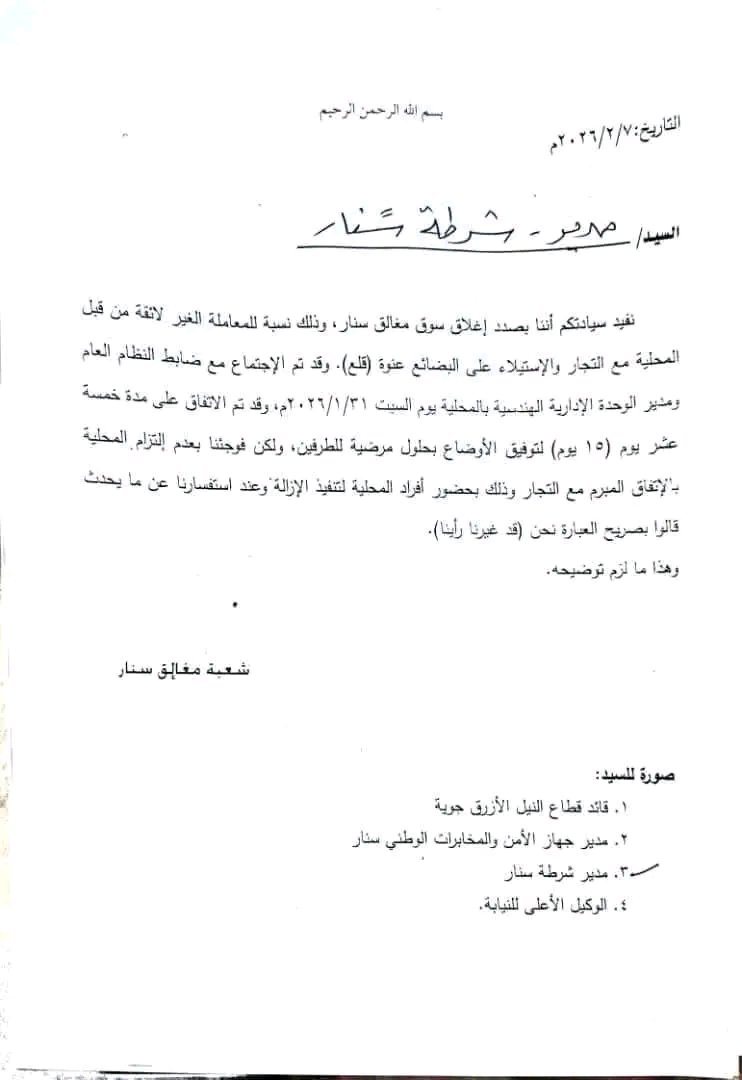 بسم الله الرحمن الرحيم
التاريخ: ٢٠٢٦/٢/٧م
السيد/ مدير - شرطة سنار
نفيد سيادتكم أننا بصدد إغلاق سوق مغالق سنار، وذلك نسبة للمعاملة الغير لائقة من قبل
المحلية مع التجار والإستيلاء على البضائع عنوة (قلع). وقد تم الإجتماع مع ضابط النظام العام
ومدير الوحدة الإدارية الهندسية بالمحلية يوم السبت ٢٠٢٦/١/٣١م، وقد تم الاتفاق على مدة خمسة
عشر يوم (١٥ يوم) لتوفيق الأوضاع بحلول مرضية للطرفين، ولكن فوجئنا بعدم إلتزام المحلية
بالإتفاق المبرم مع التجار وذلك بحضور أفراد المحلية لتنفيذ الإزالة وعند استفسارنا عن ما يحدث
قالوا بصريح العبارة نحن (قد غيرنا رأينا).
وهذا ما لزم توضيحه.
شعبة مغالق سنار
صورة للسيد:
١. قائد قطاع النيل الأزرق جوية
٢. مدير جهاز الأمن والمخابرات الوطني سنار
٣. مدير شرطة سنار
٤. الوكيل الأعلى للنيابة.